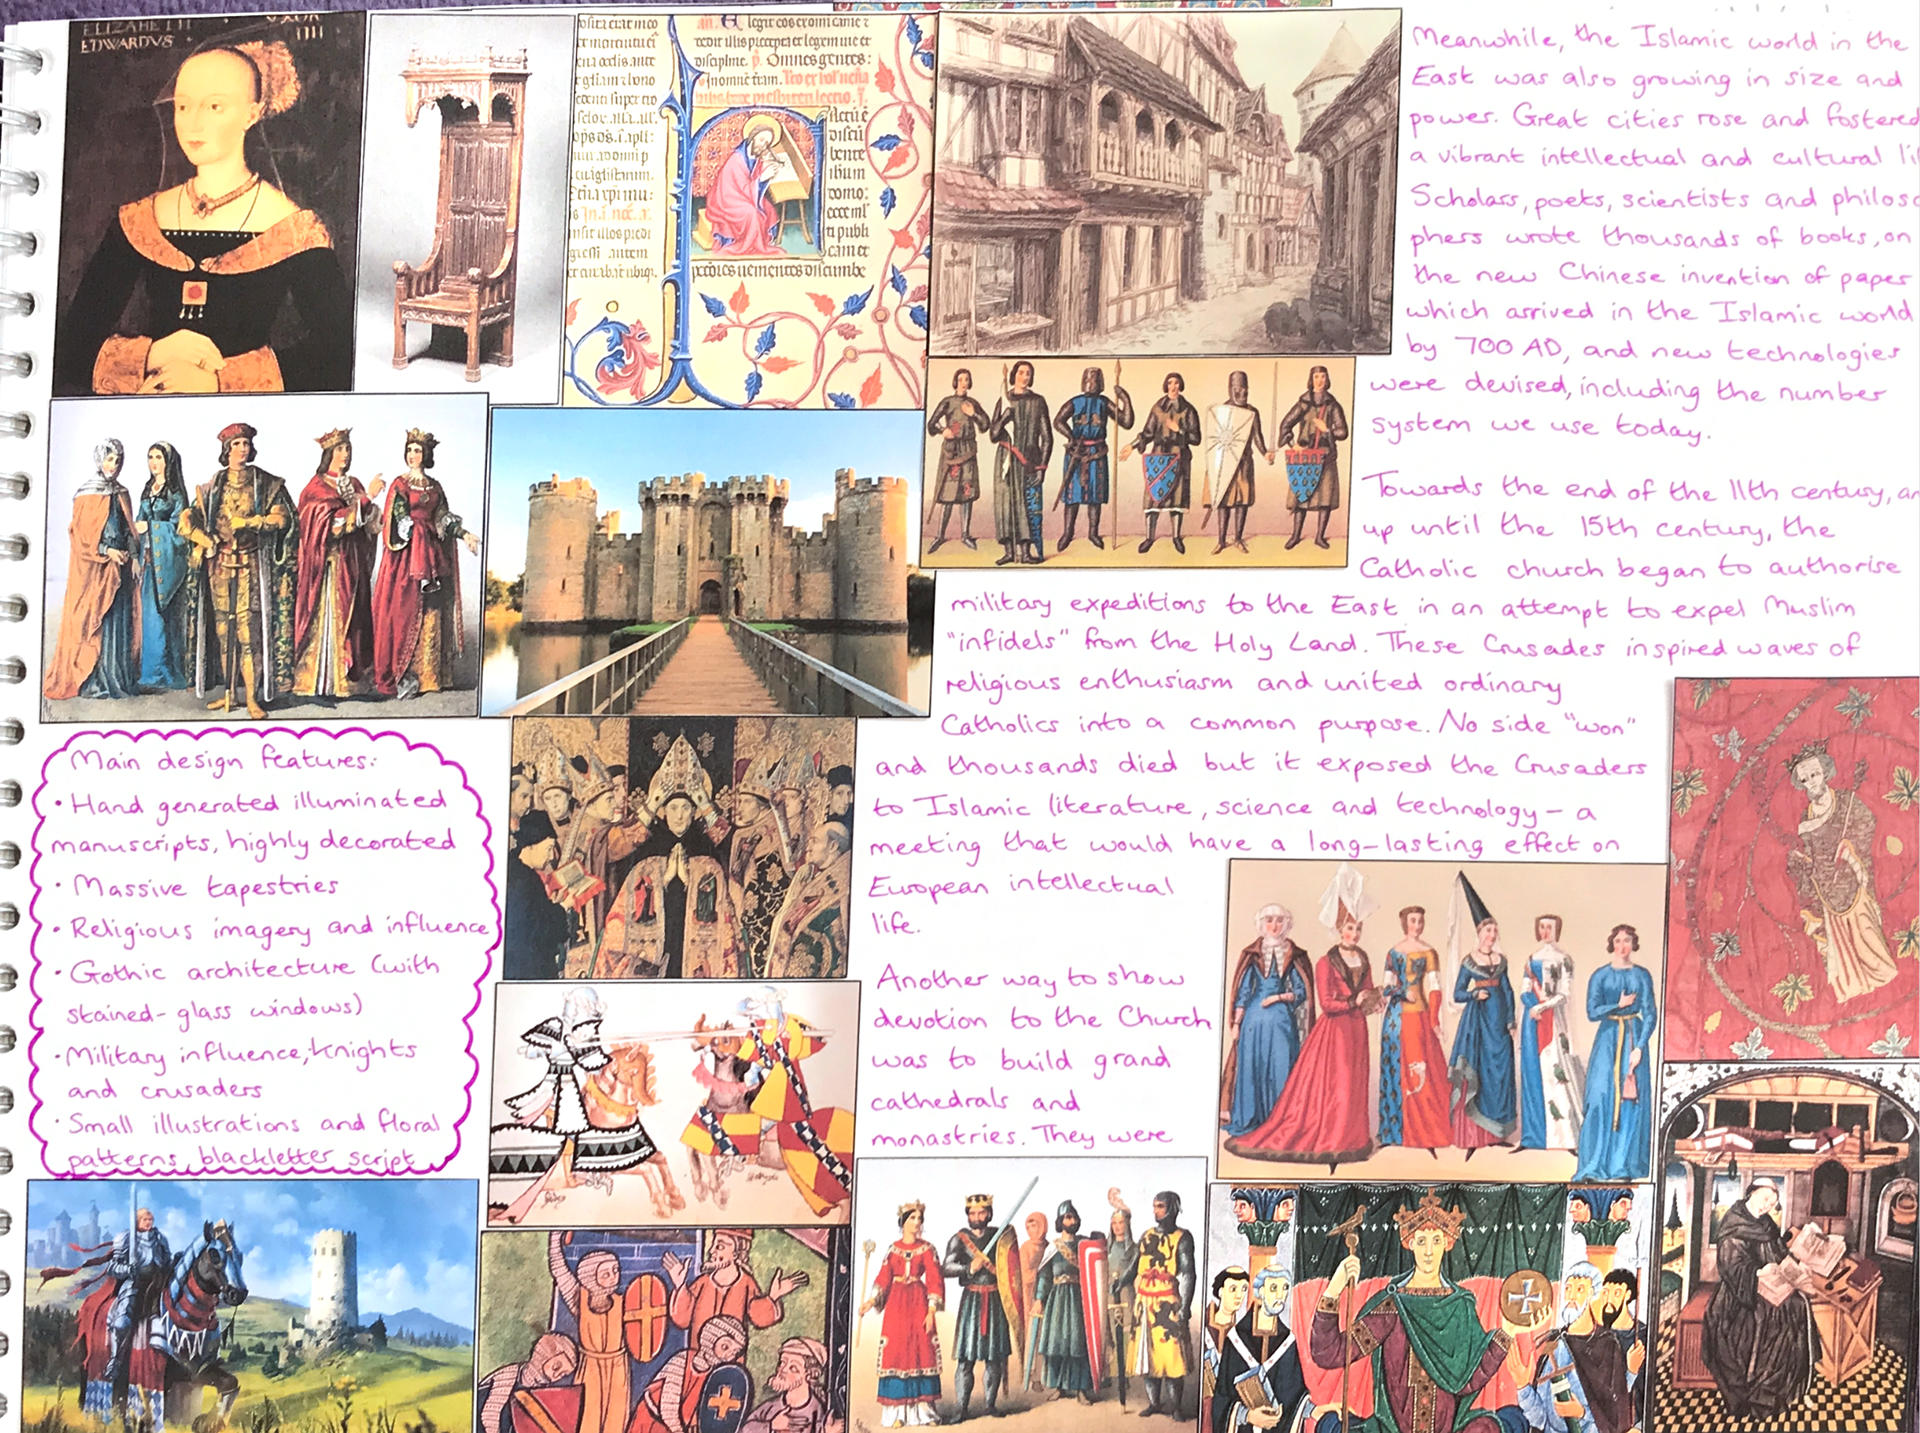 ELIZABETH
EDWARDVS
Meanwhile, the Islamic world in the
East was also growing in size and
power. Great cities rose and fostered
a vibrant intellectual and cultural
Scholars, poets, scientists and philoso
phers wrote thousands of books, on
the new Chinese invention of paper
which arrived in the Islamic world
by 700 AD, and new technologies
were devised, including the number
system we use today.
Towards the end of the 11th century,
up until the 15th century, the
Catholic church began to authorise
military expeditions to the East in an attempt to expel Muslim
"infidels" from the Holy Land. These Crusades inspired waves of
religious enthusiasm and united ordinary
Catholics into a common purpose. No side "won"
and thousands died but it exposed the Crusaders
to Islamic literature, science and technology - a
meeting that would have a long-lasting effect on
European intellectual
life.
Another way to show
devotion to the Church
was to build grand
cathedrals and
monastries. They were
Main design features:
• Hand generated illuminated
manuscripts, highly decorated
• Massive tapestries
• Religious imagery and influence
• Gothic architecture (with
stained-glass windows)
• Military influence, knights
and crusaders
• Small illustrations and floral
patterns, blackletter script